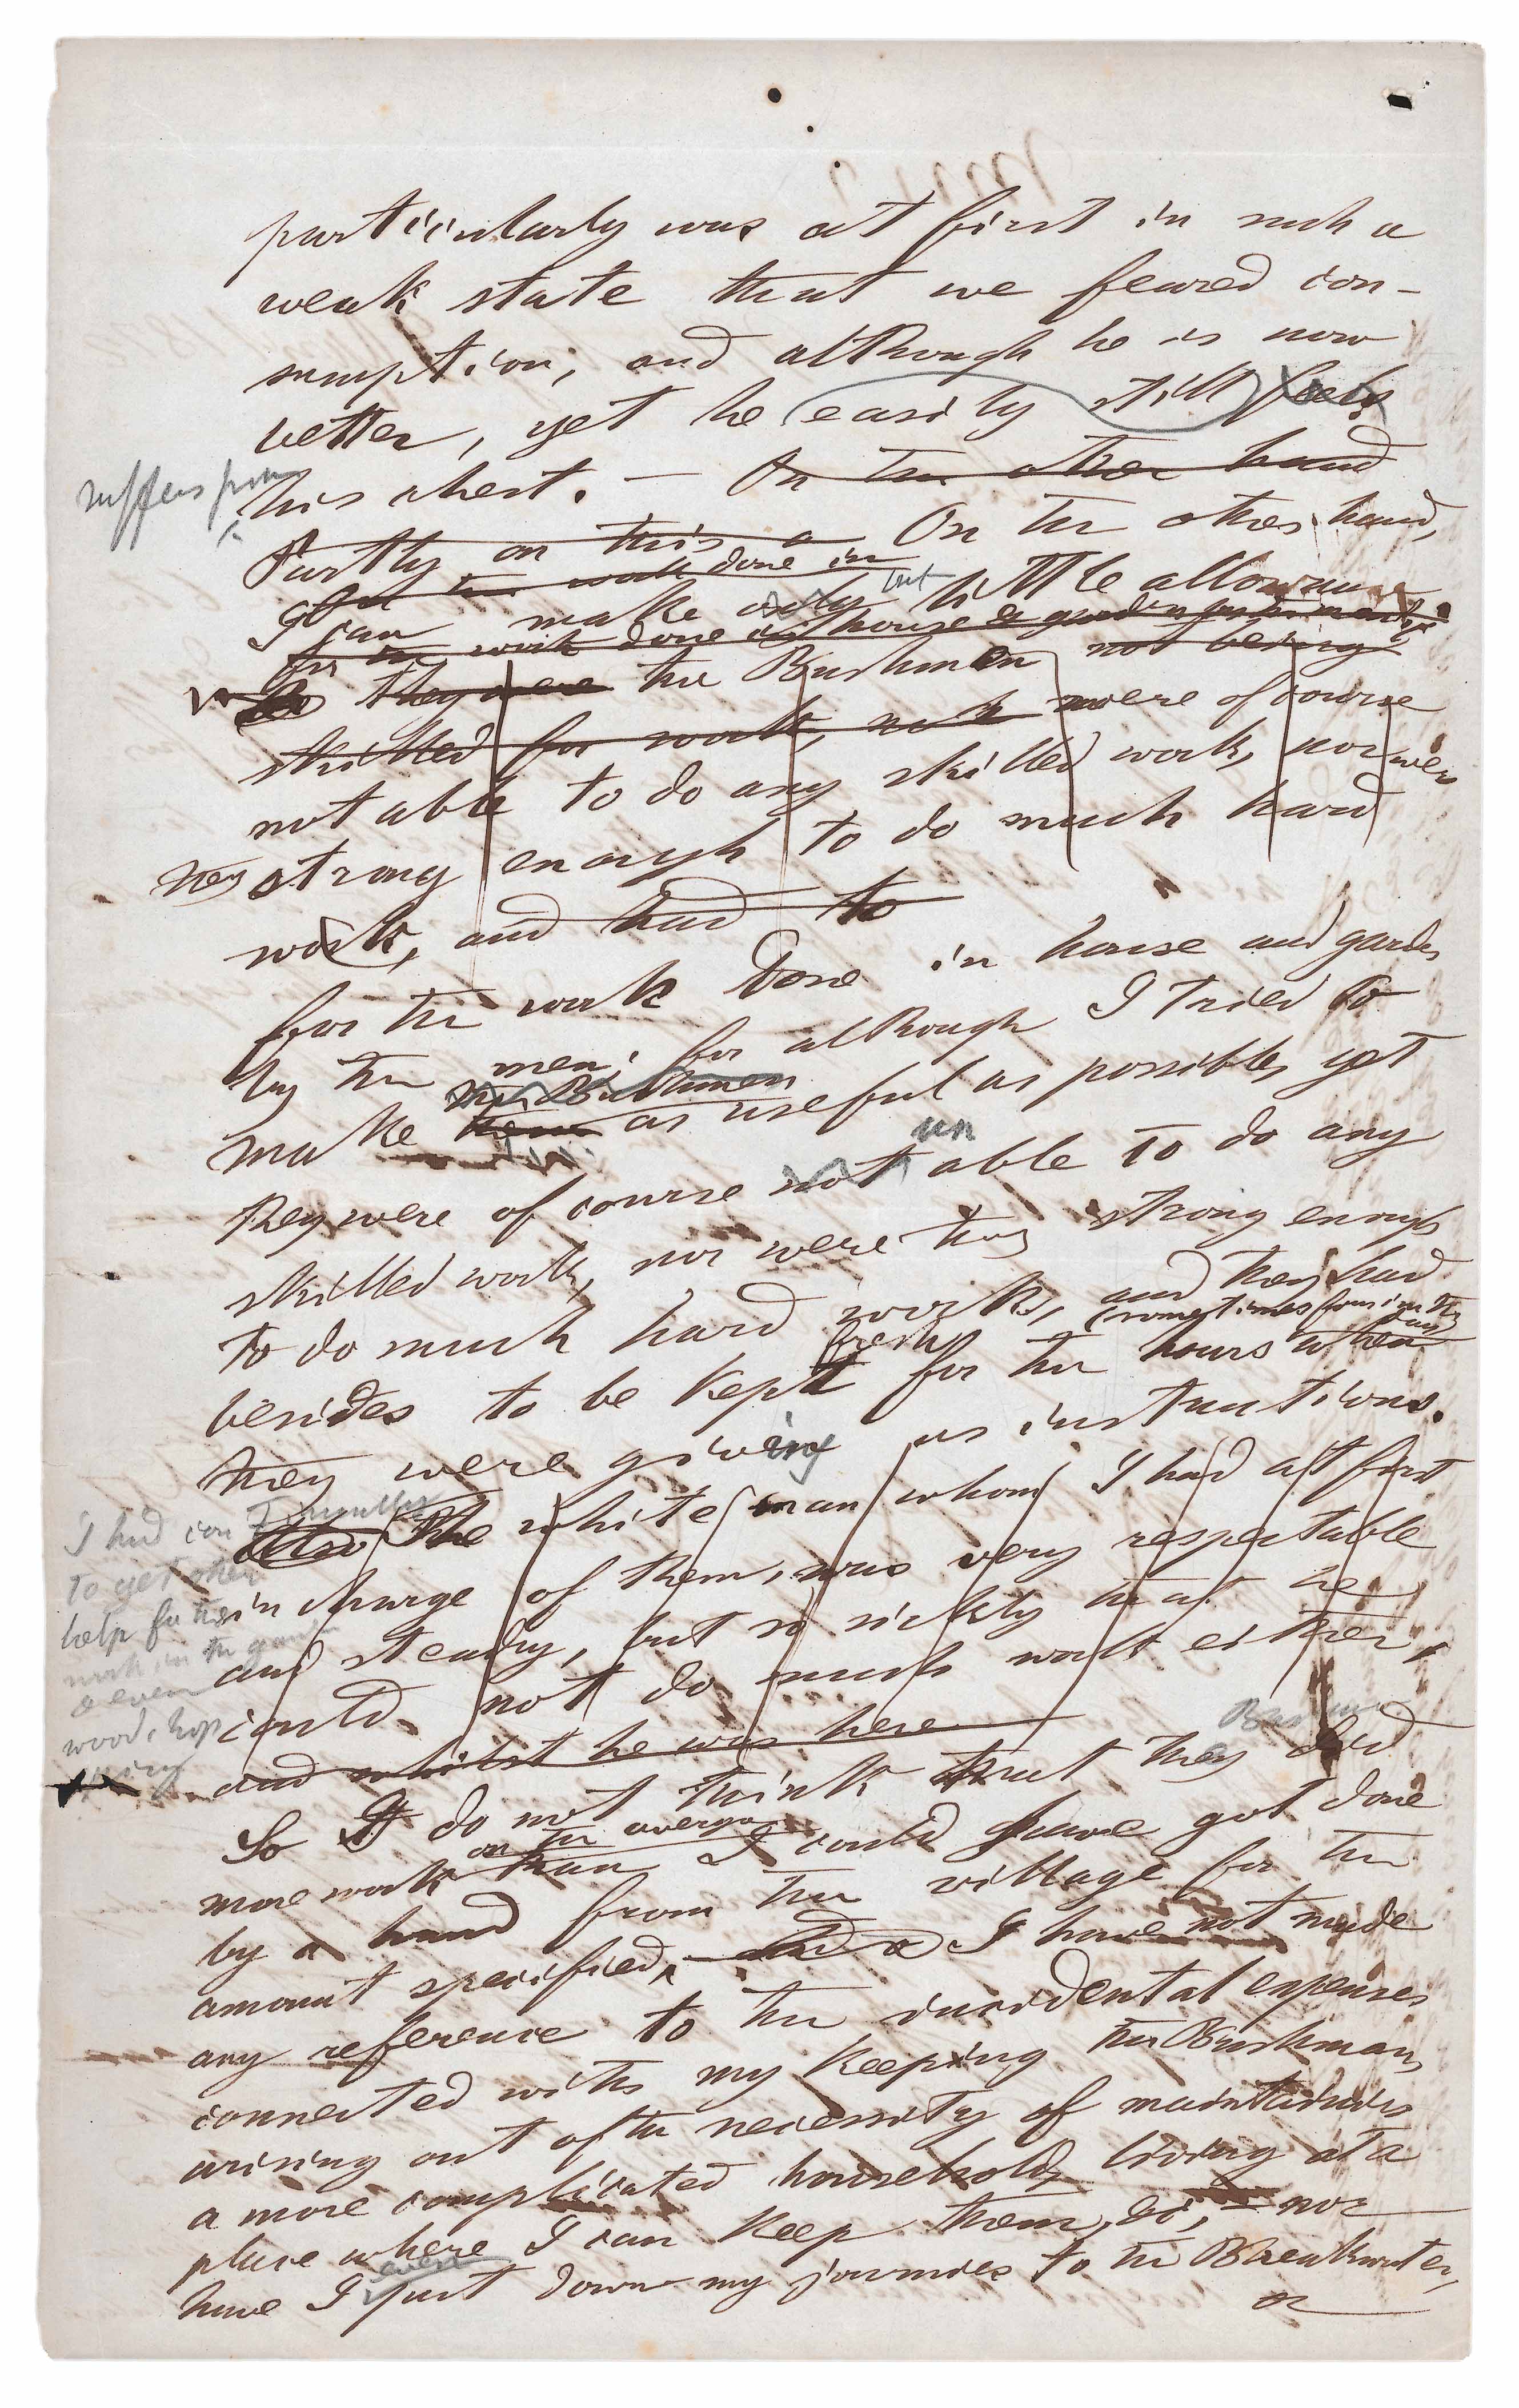 particularly was at first in such a
weak state that we feared con-
sumption; and although he is now
better, yet he easily still feels
suffers from
his chest. — On the other hand
Partly on this a On the other hand,
for the work done in
I can make only but little allowance
for the work done in house & garden
they were the Bushmen not being
skilled for work, were of course
not able to do any skilled work, nor were
they strong enough to do much hard
work, and had to
for the work done in house and garden
by the men; for although I tried to
the Bushmen
make them as useful as possible, yet
un
they were of course not able to do any
skilled work, nor were they strong enough
to do much hard work, and they had
fresh (sometimes four in the day)
besides to be kept for the hours when
they were giving us instructions.
The white man whom I had at first
I had
to get other
help for the
work in the garden
& even
wood chop
ping
in charge of them, was very respectable
and steady, but so sickly that he
could not do much work either,
and whilst he was here
Bushmen
So I do not think that they did
on the average
more work than I could have got done
by a hand from the village for the
amount specified, I have not made
any reference to the incidental expenses
connected with my keeping the Bushman,
arising out of the necessity of maintaining
a more complicated household, living at a
place where I can keep them, &c, — nor
even
have I put down my journies to the Breakwater,
or